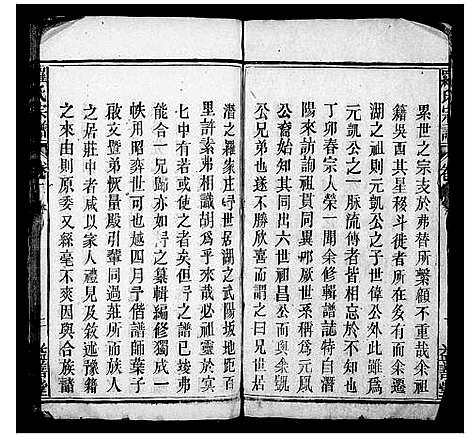 羅氏宗譜
累世之宗支於弗替所繫顧不重歟余祖
籍吳西其星移斗徙者所在多有而余遷
湖之祖則元凱公之子世偉公外此雖爲
元凱公之一脉流傳者相忘於不知也
丁卯春宗人榮一聞余修輯譜誌特自潛
陽來訪詢祖貫歷世系稱爲元鳳
公裔始知其同出六世祖昌公而與余
公兄弟也遂不勝欣喜而謂之曰兄世居
潛之羅家庄世居湖之武陽坂地距百
里許素弗相識胡爲乎來哉必祖靈於冥
七中有若或使之者矣但之譜已竣弗
能合一兄歸亦如之纂輯編修獨成一
帙用昭奕世可也越四月偕譜師葉子
啟文暨弟恢量殿引輩同過莊所而族人
之居莊中者咸以家人禮見及敘豫籍
之來由則原委又絲毫不爽因與合族諸
羅氏宗譜